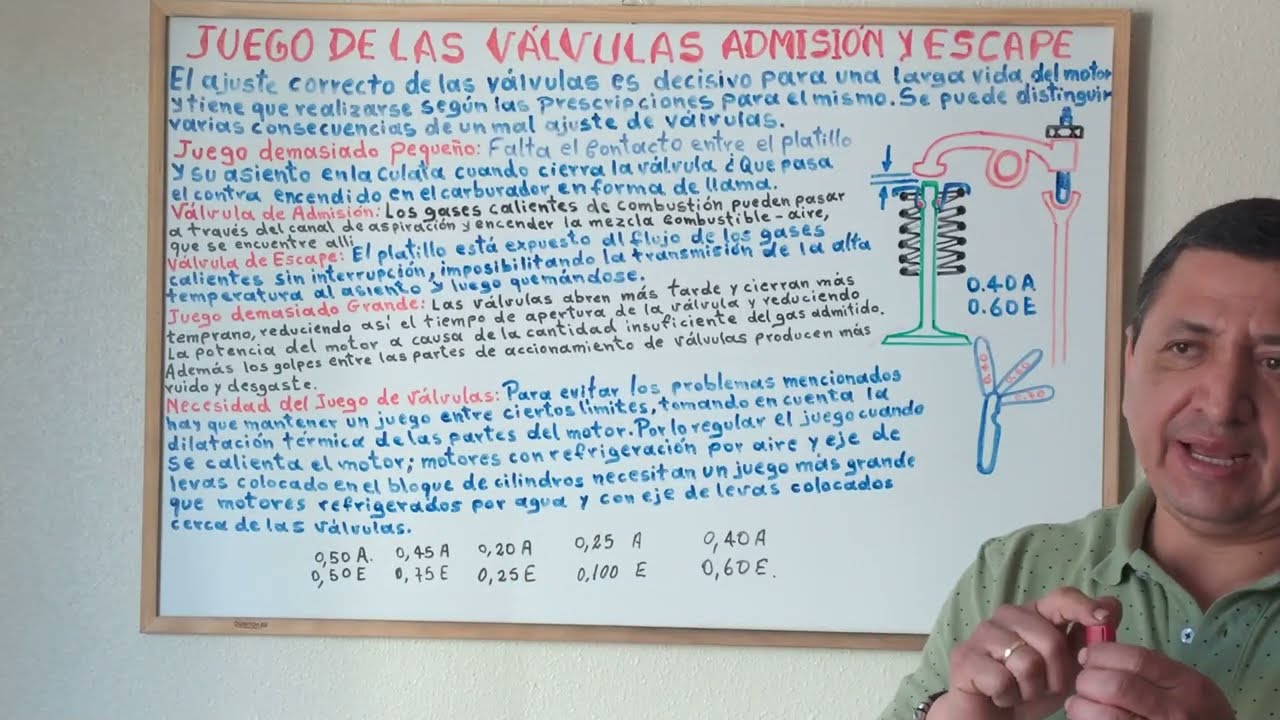 JUEGO DE LAS VÁLVULAS ADMISIÓN Y ESCAPE
El ajuste correcto de las válvulas es decisivo para una larga vida del motor
y tiene que realizarse según las Prescripciones para el mismo. Se puede distinguir
varias consecuencias de un mal ajuste de válvulas.
Juego demasiado pequeño: Falta el contacto entre el platillo
y su asiento en la culata cuando cierra la válvula ¿Que pasa
el contra encendido en el carburador en forma de llama.
Válvula de Admisión: Los gases calientes de combustión pueden pasar
a través del canal de aspiración y encender la mezcla combustible - aire,
que se encuentre alli
Válvula de Escape: El platillo está expuesto al flujo de los gases
calientes sin interrupción, imposibilitando la transmisión de la alta
temperatura al asiento y luego quemándose.
Juego demasiado Grande: Las válvulas abren más tarde y cierran más
temprano, reduciendo así el tiempo de apertura de la válvula y reduciendo
La potencia del motor a causa de la cantidad insuficiente del gas admitido.
Además los golpes entre las partes de accionamiento de válvulas producen más
ruido y desgaste.
Necesidad del Juego de válvulas: Para evitar los problemas mencionados
hay que mantener un juego entre ciertos límites, tomando en cuenta la
dilatación térmica de las partes del motor. Por lo regular el juego cuando
se calienta el motor; motores con refrigeración por aire y eje de
levas colocado en el bloque de cilindros necesitan un juego más grande
que motores refrigerados por agua y con eje de levas colocados
cerca de las válvulas.
0,50 A. 0,45 A 0,20 A 0,25 A 0,40 A
0,50 E 0,75 E 0,25 E 0,100 E 0,60 E.
0.40 A
0.60 E
0.40